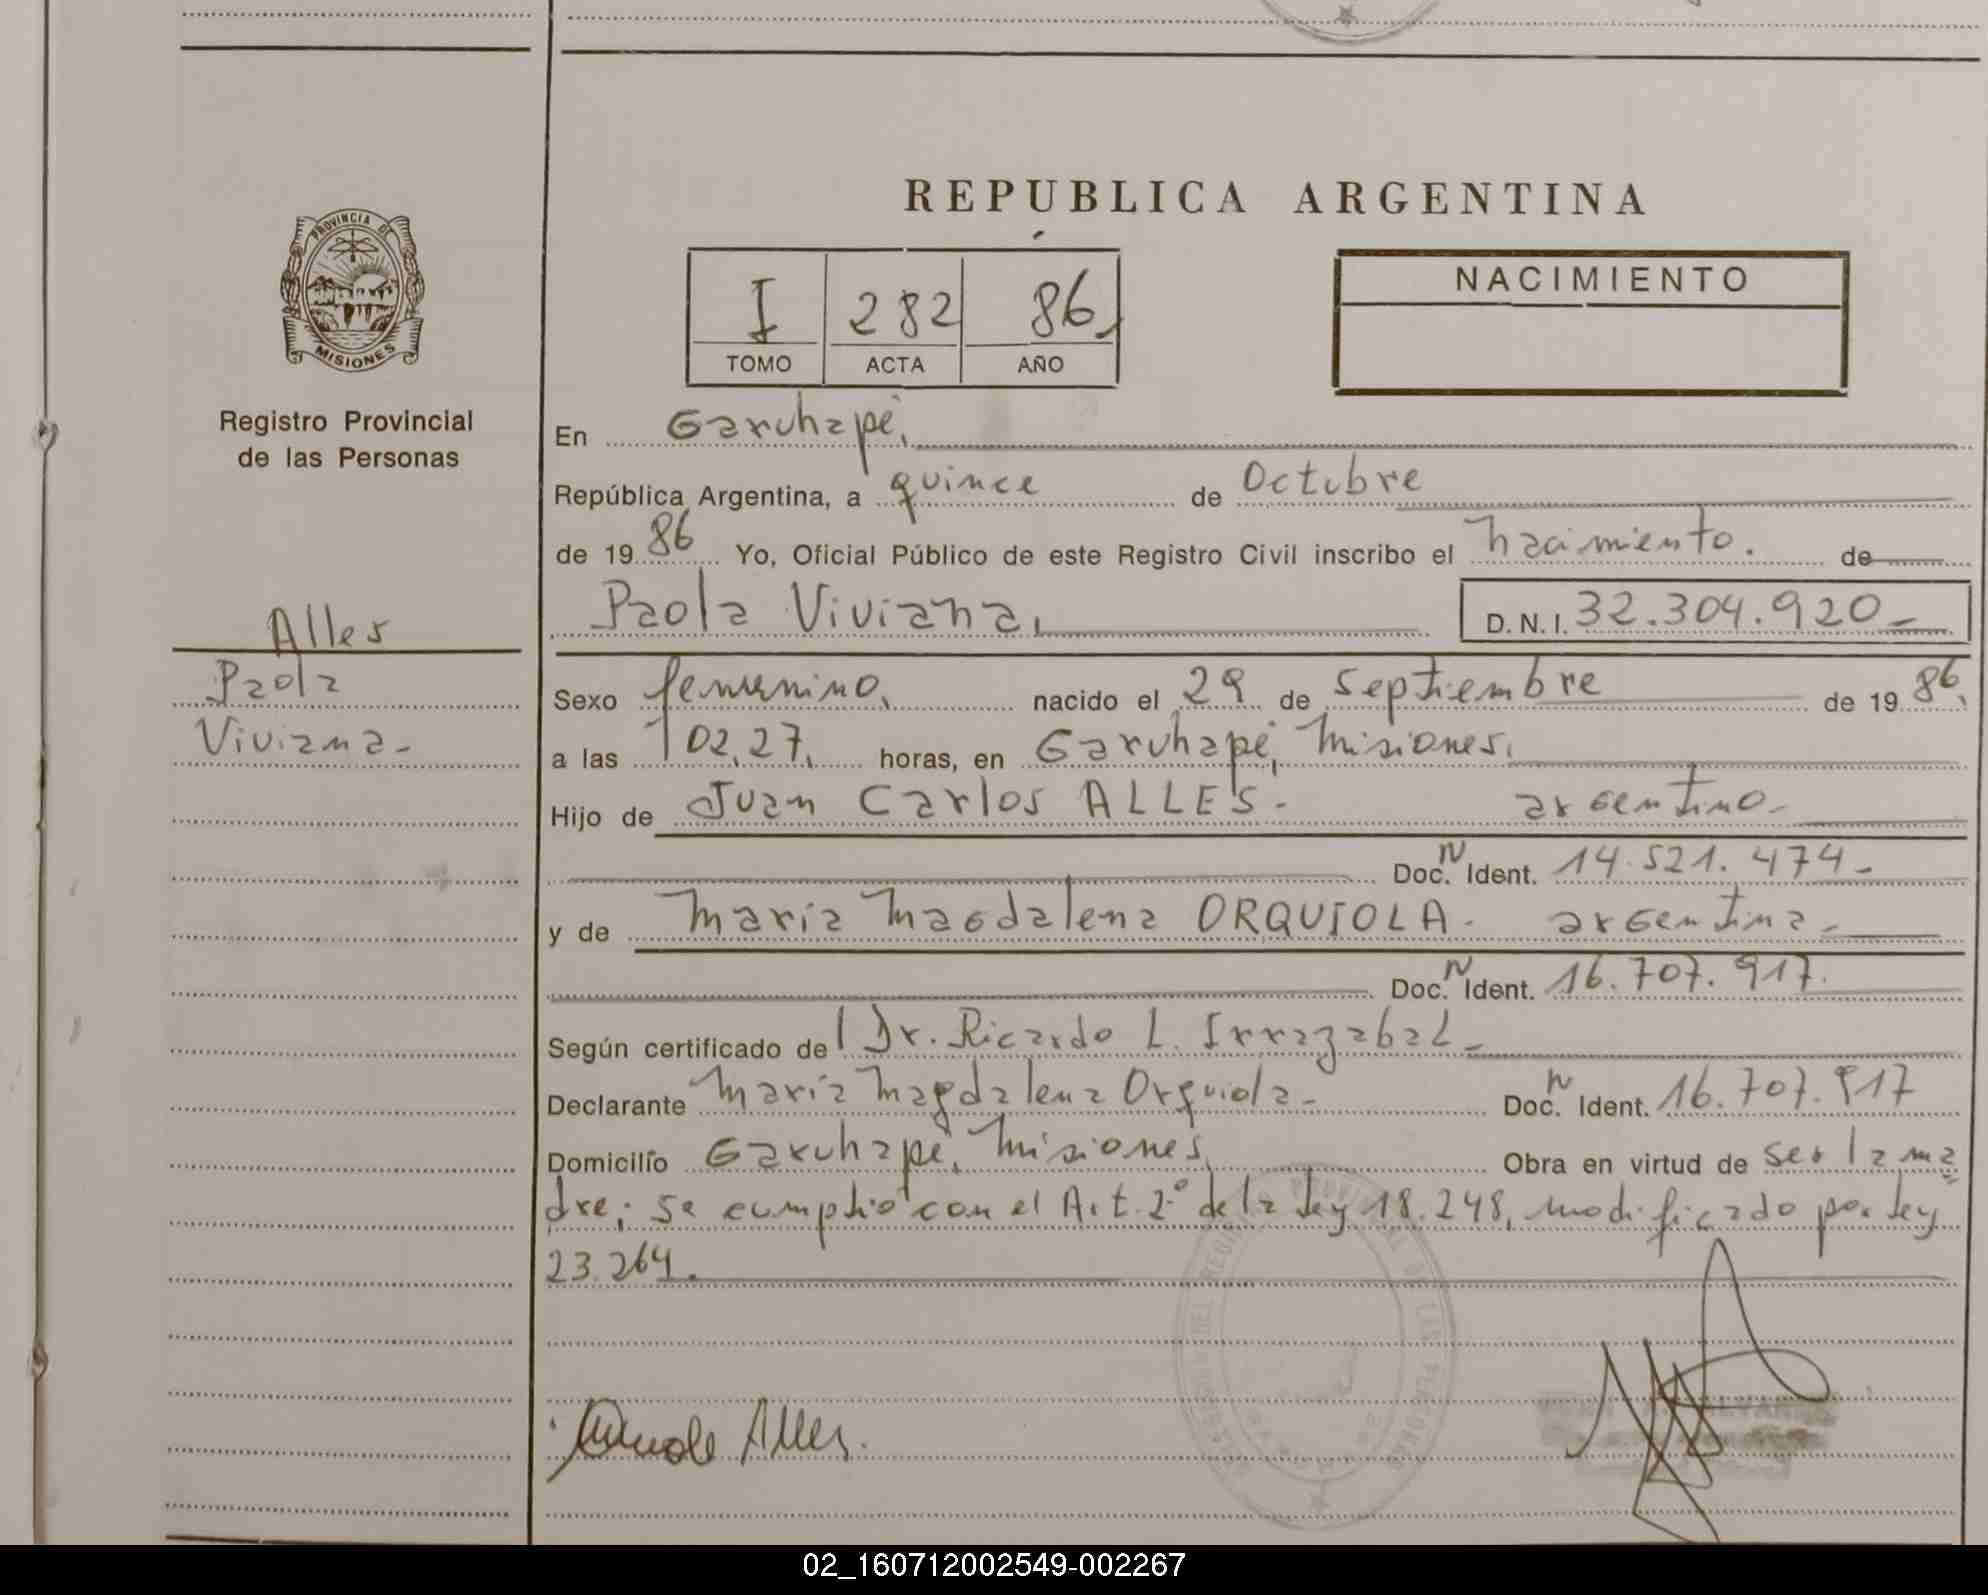 REPUBLICA ARGENTINA
PROVINCIA DE
MISIONES
Registro Provincial
de las Personas
Alles
Paola
Viviana-
I 282 86,
TOMO ACTA AÑO
NACIMIENTO
En Garuhapé,
República Argentina, a quince de Octubre
de 19 86 Yo, Oficial Público de este Registro Civil inscribo el nacimiento. de
Paola Viviana, D. N. I. 32.304.920-
Sexo femenino, nacido el 29 de septiembre de 19 86,
a las 02,27, horas, en Garuhapé, Misiones,
Hijo de Juan Carlos ALLES- argentino-
Doc. N Ident. 14.521.474-
y de María Magdalena ORQUIOLA- argentina-
Doc. N Ident. 16.707.917.
Según certificado de Dr. Ricardo L. Irrazabal-
Declarante María Magdalena Orquiola- Doc. N Ident. 16.707.917
Domicilio Garuhapé, Misiones, Obra en virtud de ser la ma
dre; se cumplió con el Art. 2º de la ley 18.248, modificado por ley
23.264.
Alles.
02_160712002549-002267